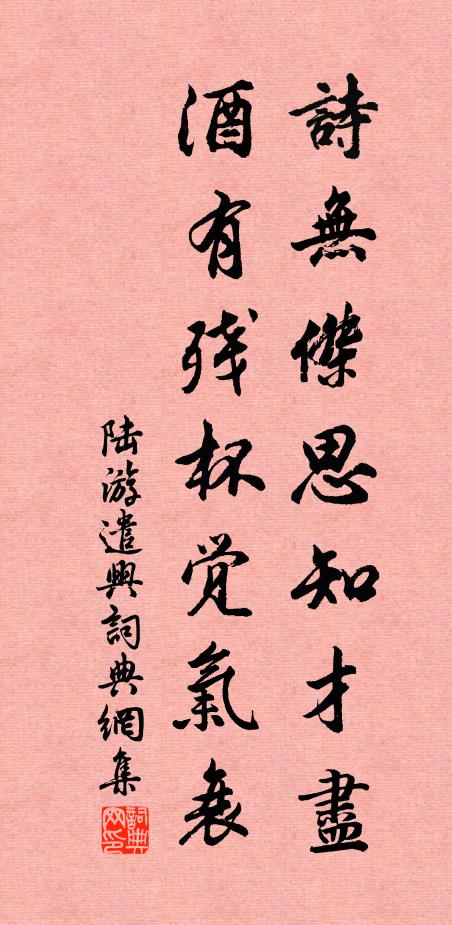 詩無傑思知才盡
酒有残杯覚氣衰
陆游遣興詞典網集
詞典网印